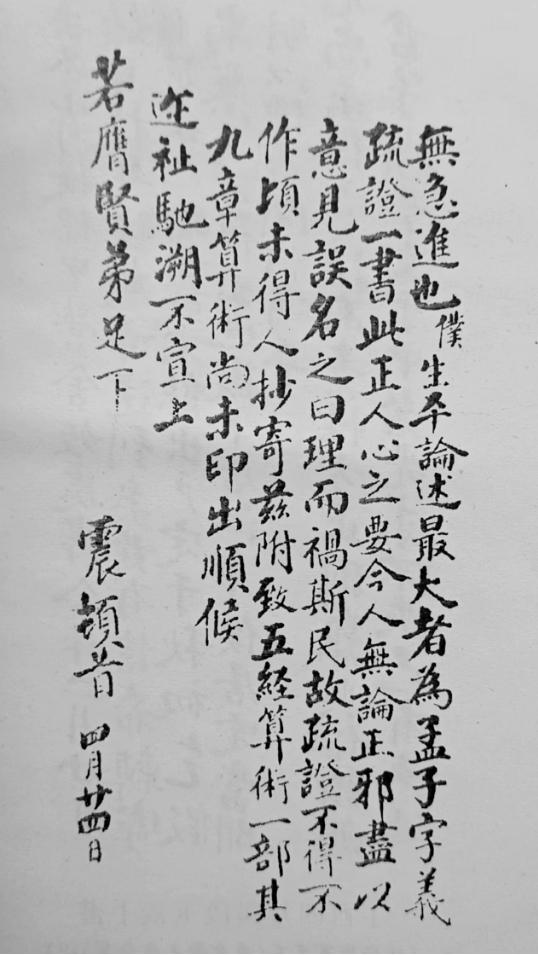 無急進也僕生平論述最大者為孟子字義
疏證一書此正人心之要今人無論正邪盡以
意見誤名之曰理而禍斯民故疏證不得不
作頃未得人抄寄茲附致五経算術一部其
九章算術尚未印出順候
近祉馳溯不宣上
若膺賢弟足下
震頓首 四月廿四日